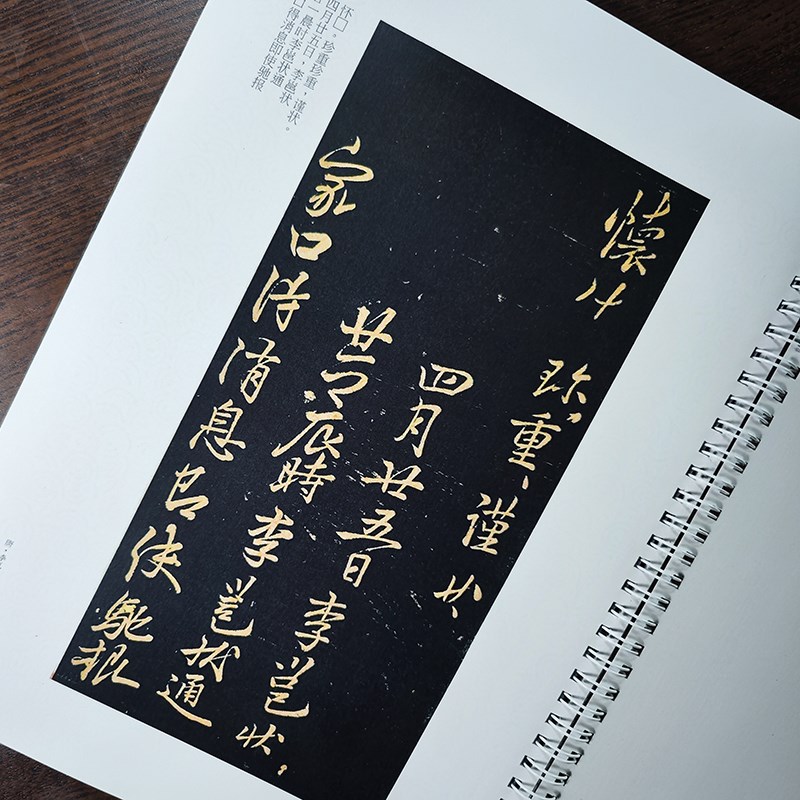 懷
珍〻重〻謹状
四月廿五日李邕状
廿一日晨時李邕状通
家口得消息即使馳報
怀□。珍重珍重，谨状。
四月廿五日，李邕状。
一 晨时李邕状通
口得消息即使驰报